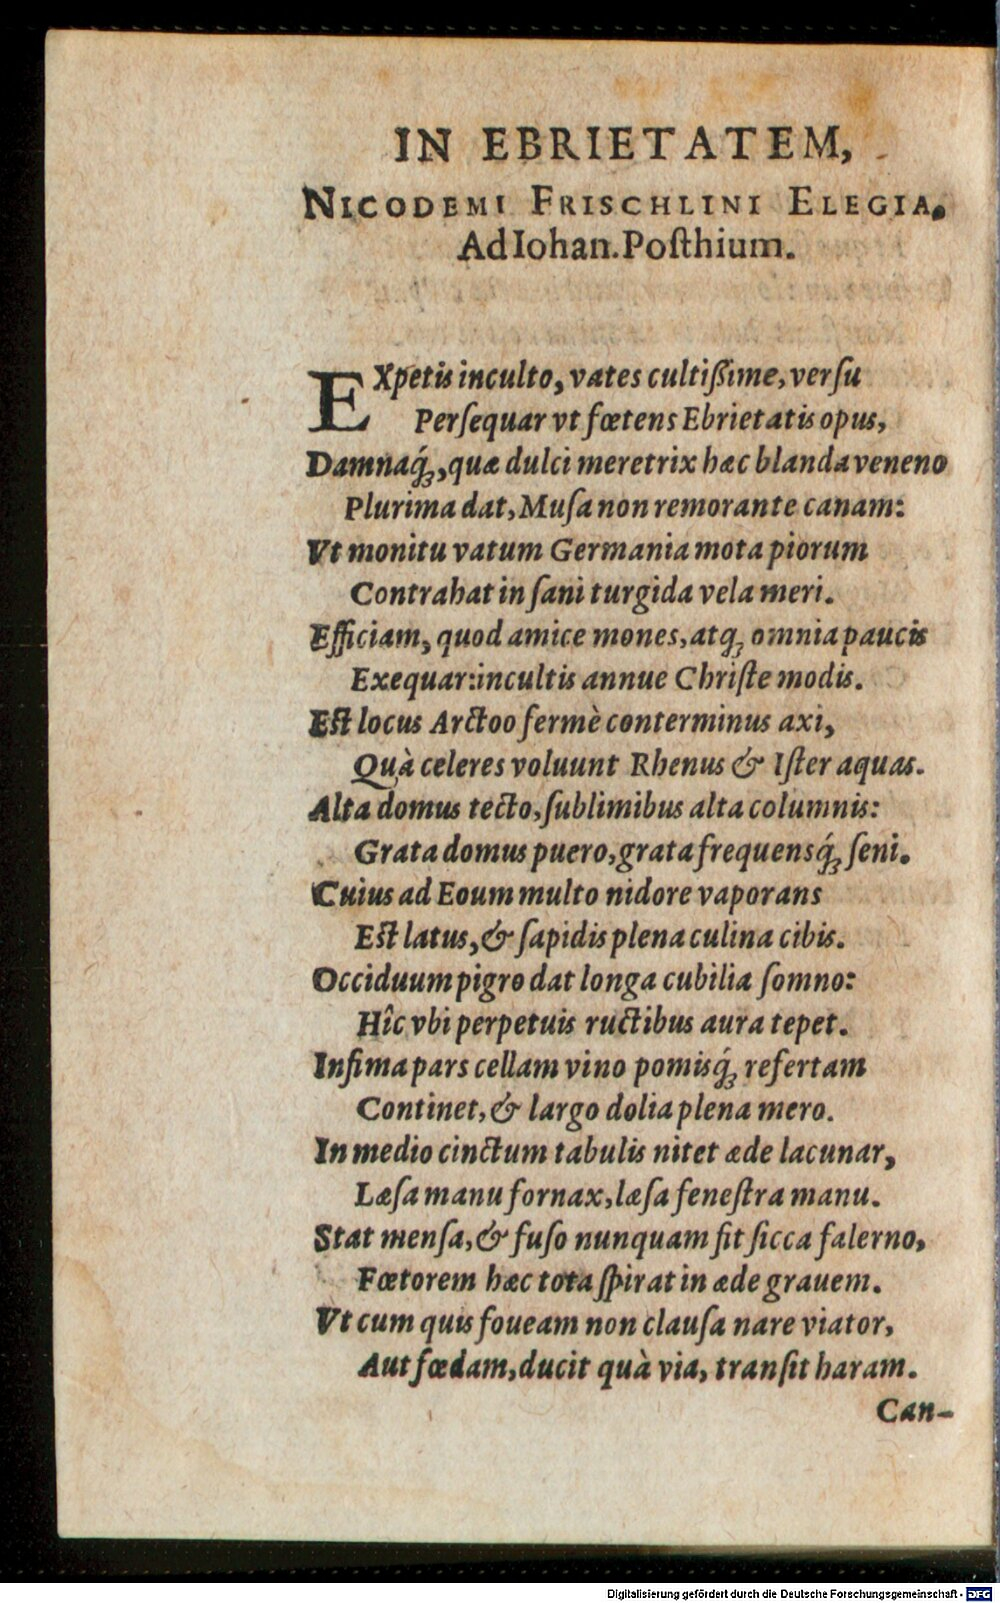 IN EBRIETATEM,
NICODEMI FRISCHLINI ELEGIA.
Ad Iohan. Poſthium.
EXpetis inculto, vates cultiſsime, verſu
Perſequar vt fœtens Ebrietatis opus,
Damnaq́ꝫ, quæ dulci meretrix hæc blanda veneno
Plurima dat, Muſa non remorante canam:
Vt monitu vatum Germania mota piorum
Contrahat in ſani turgida vela meri.
Efficiam, quod amice mones, atqꝫ omnia paucis
Exequar: incultis annue Chriſte modis.
Eſt locus Arctoo fermè conterminus axi,
Quà celeres voluunt Rhenus & Iſter aquas.
Alta domus tecto, ſublimibus alta columnis:
Grata domus puero, grata frequensq́ꝫ ſeni.
Cuius ad Eoum multo nidore vaporans
Eſt latus, & ſapidis plena culina cibis.
Occiduum pigro dat longa cubilia ſomno:
Hîc vbi perpetuis ructibus aura tepet.
Infima pars cellam vino pomisq́ꝫ refertam
Continet, & largo dolia plena mero.
In medio cinctum tabulis nitet æde lacunar,
Læſa manu fornax, læſa feneſtra manu.
Stat menſa, & fuſo nunquam fit ſicca falerno,
Fœtorem hæc tota ſpirat in æde grauem.
Vt cum quis foueam non clauſa nare viator,
Aut fœdam, ducit quà via, tranſit haram.
Can-
Digitalisierung gefördert durch die Deutsche Forschungsgemeinschaft - DFG